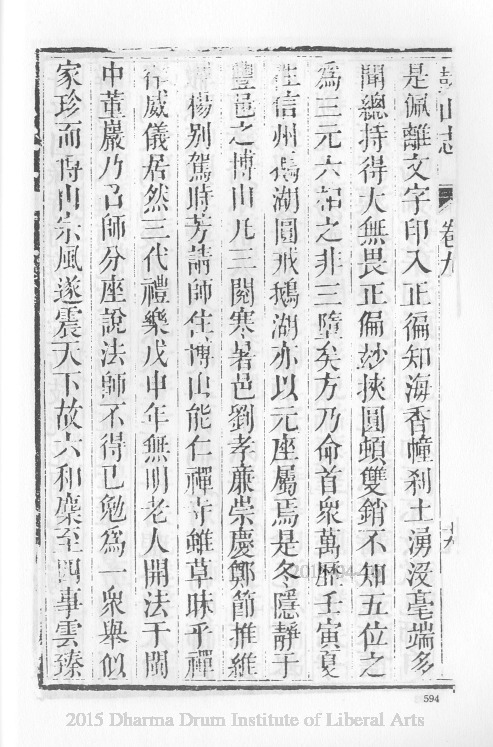 鼓山志
卷九
十九
是佩離文字印入正徧知海香幢剎土湧沒毫端多
聞總持得大無畏正偏妙挾圓頓雙銷不知五位之
爲三元六相之非三墮矣方乃命首衆萬歷壬寅夏
往信州鵝湖圓戒鵝湖亦以元座屬焉是冬隱靜于
豐邑之博山凡三閱寒暑邑劉孝廉崇慶鄭節推維
楊別駕時芳請師住博山能仁禪寺雖草昧乎禪
律威儀居然三代禮樂戊申年無明老人開法于閩
中董巖乃召師分座說法師不得已勉爲一衆舉似
家珍而博山宗風遂震天下故六和麇至四事雲臻
594
2015 Dharma Drum Institute of Liberal Arts